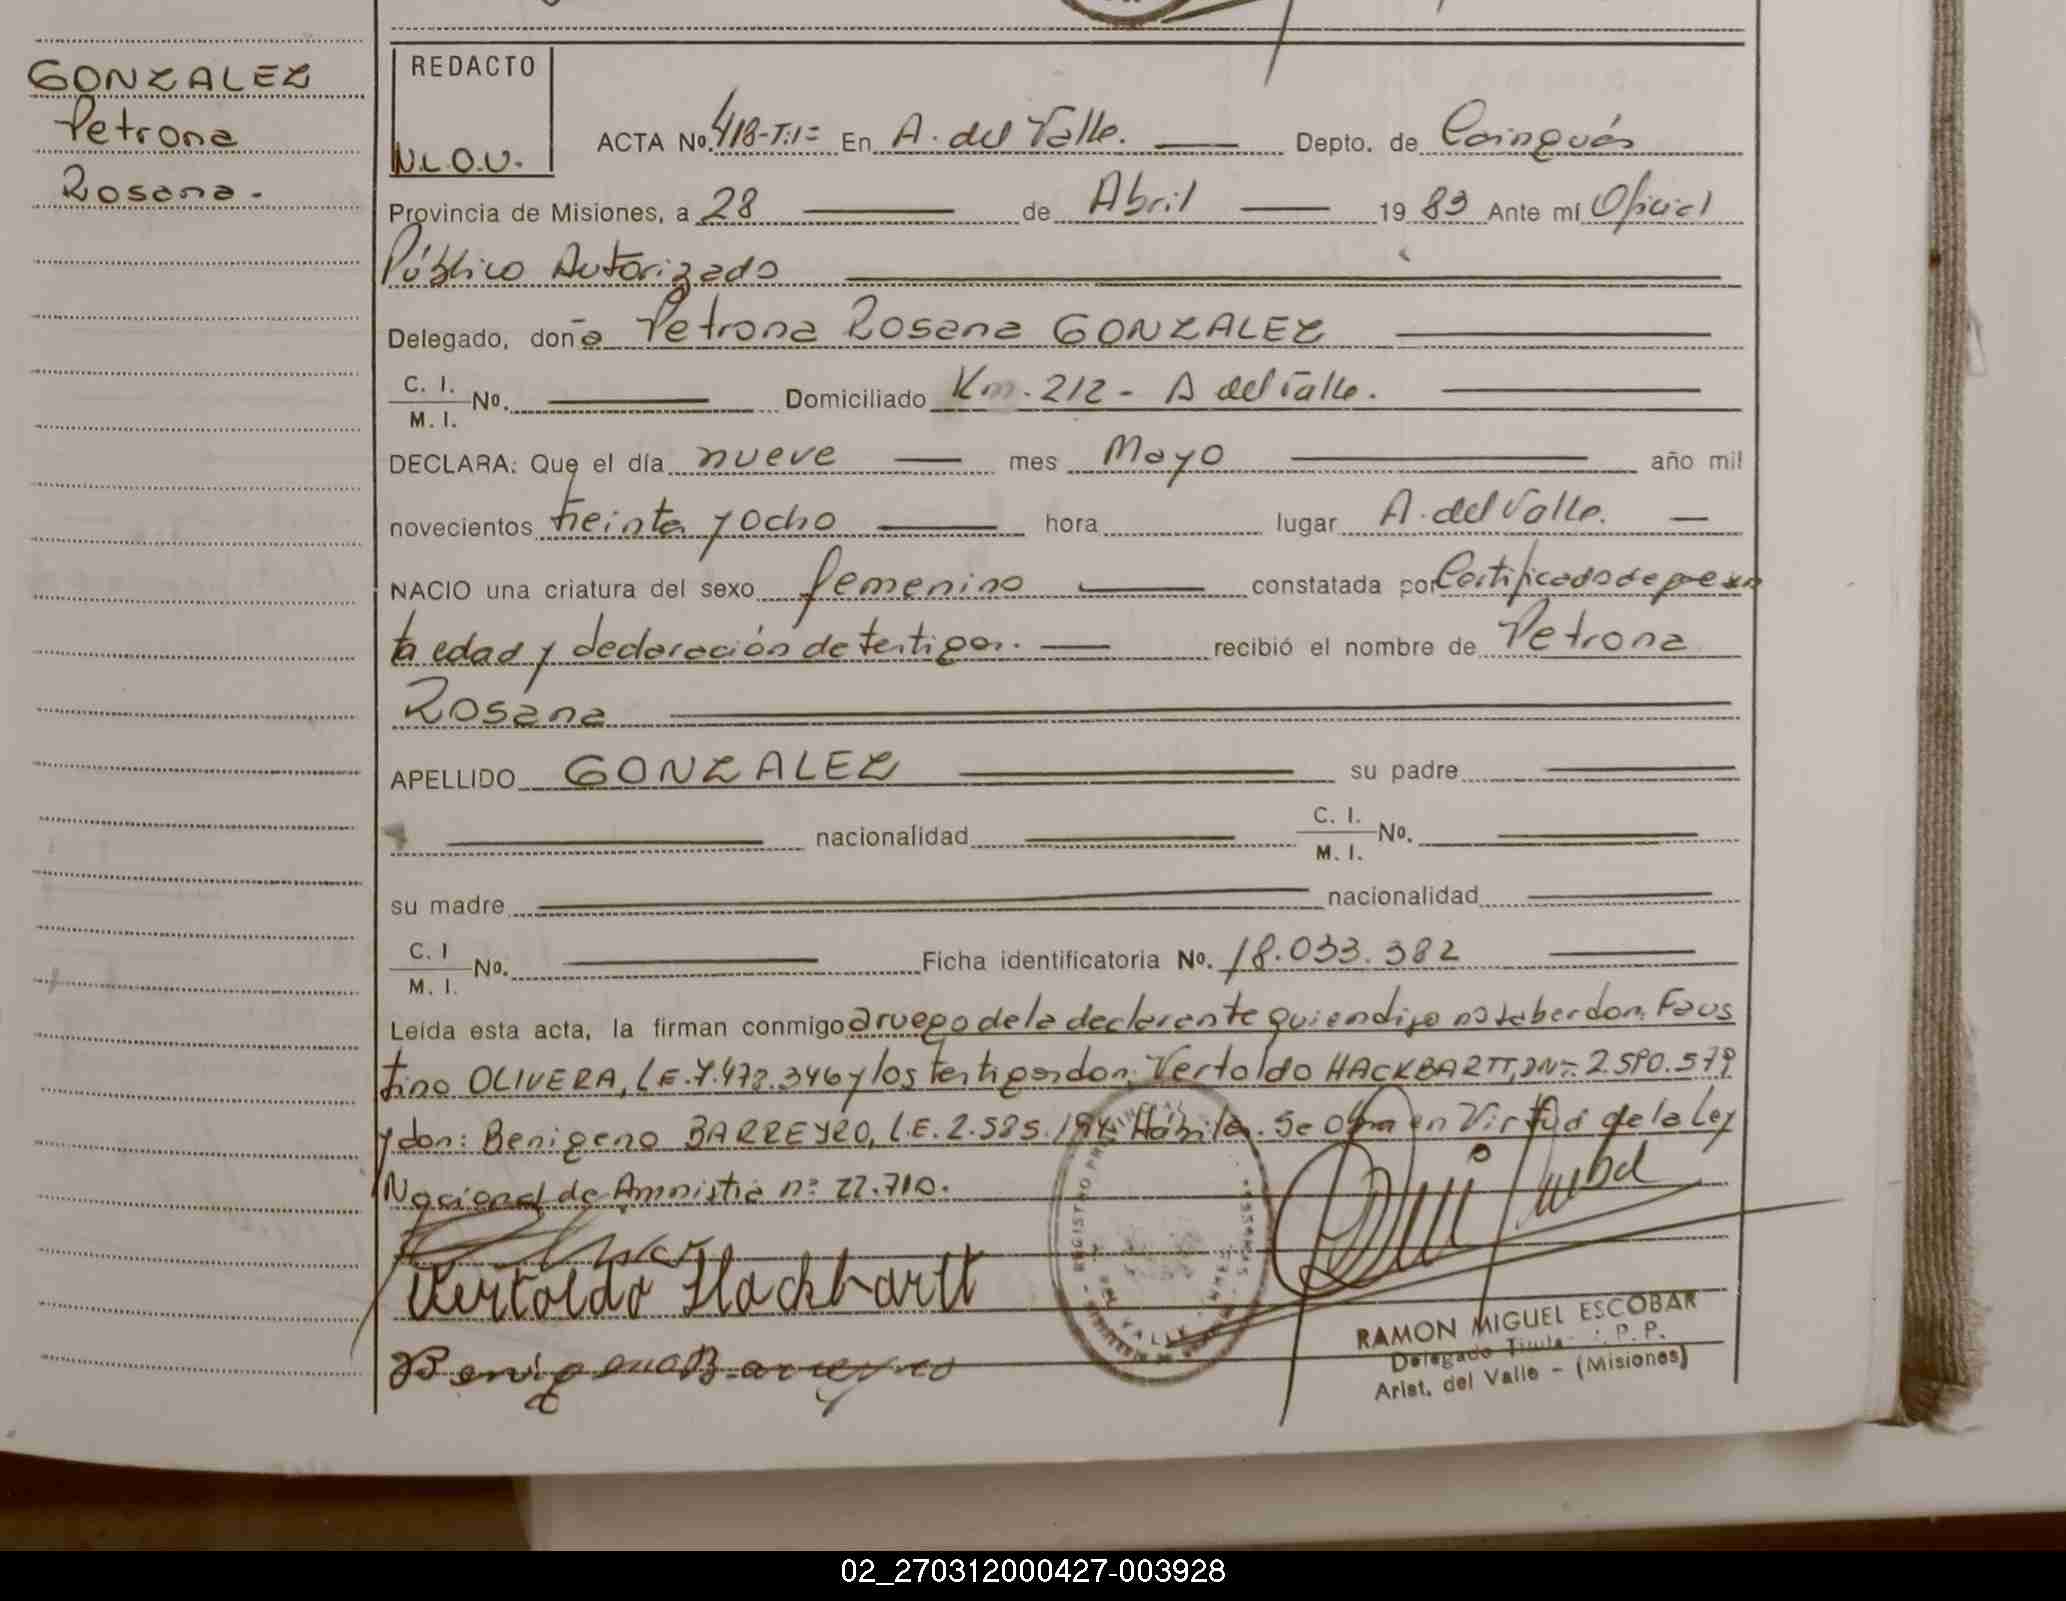 GONZALEZ
Petrona
Rosana.
REDACTO
N.L.O.U.
ACTA No. 418-T:1= En A. del Valle. Depto. de Cainguás
Provincia de Misiones, a 28 de Abril 1983 Ante mí Oficial
Público Autorizado
Delegado, doña Petrona Rosana GONZALEZ
C. I.
M. I. No. Domiciliado Km. 212 - A del Valle.
DECLARA: Que el día nueve mes Mayo año mil
novecientos treinta y ocho hora lugar A. del Valle.
NACIO una criatura del sexo femenino constatada por Certificado de presun
ta edad y declaración de testigos. recibió el nombre de Petrona
Rosana
APELLIDO GONZALEZ su padre
nacionalidad C. I.
M. I. No.
su madre nacionalidad
C. I
M. I. No. Ficha identificatoria No. 18.033.382
Leída esta acta, la firman conmigo a ruego de la declarante quien dijo no saber don: Faus
tino OLIVERA, L.E. 7.472.346 y los testigos don: Vertoldo HACKBARTT, DNº: 2.590.579
y don: Benigno BARREYRO, L.E. 2.585. Hábiles. Se obra en Virtud de la Ley
Nacional de Amnistia nº: 22.710.
Vertoldo Hackbartt
Benigno Barreyro
REGISTRO PROVINCIAL
DEL VALLE
MISIONES
RAMON MIGUEL ESCOBAR
Delegado Titular P. P.
Arist. del Valle - (Misiones)
02_270312000427-003928